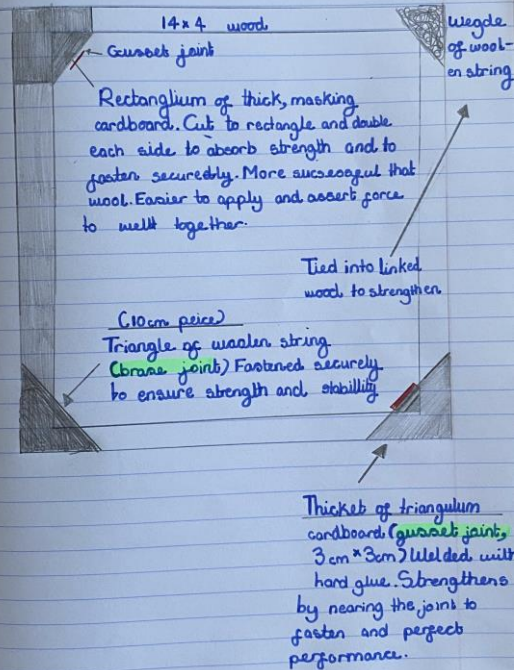 14 x 4 wood
Gusset joint
Wegde
of wool-
en string
Rectanglium of thick, masking
cardboard. Cut to rectangle and double
each side to absorb strength and to
fasten securedly. More sucsessful that
wool. Easier to apply and assert force
to wellt together.
Tied into linked
wood to strengthen
(10cm peice)
Triangle of woolen string
(brase joint) Fastened securely
to ensure strength and stabillity
Thicket of triangulum
cardboard (gusset joint,
3cm x 3cm) Welded with
hard glue. Strengthens
by nearing the joint to
fasten and perfect
performance.